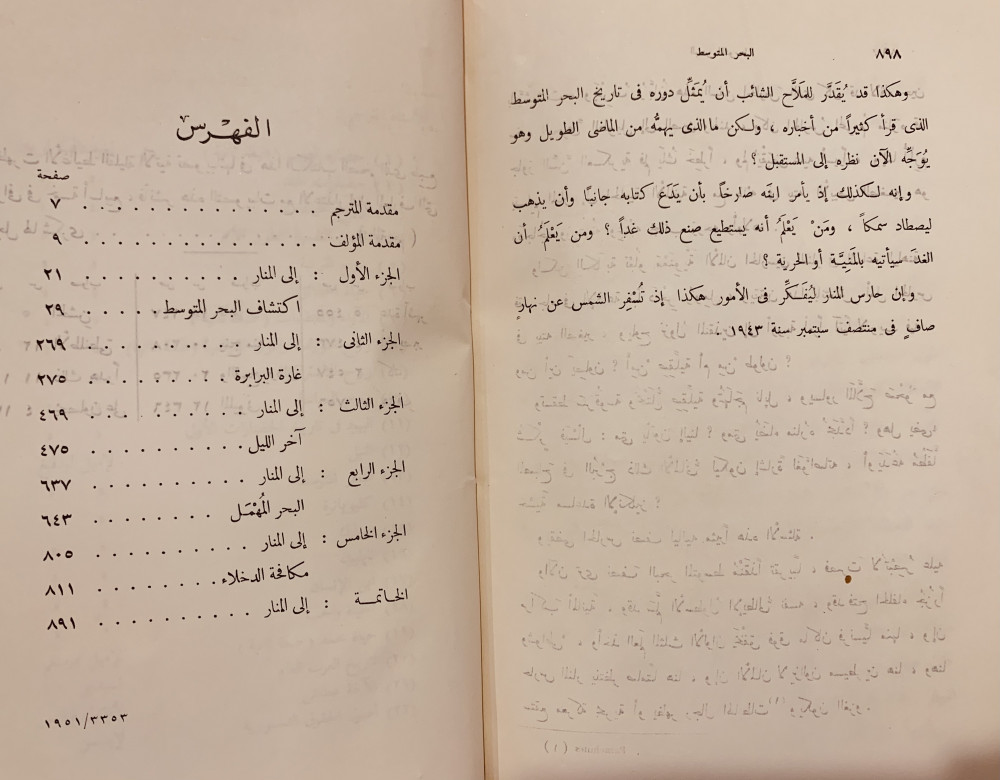 ٨٩٨
البحر المتوسط
وهكذا قد يُقَدَّر للمَلاَّح الشائب أن يُمَثِّل دوره فى تاريخ البحر المتوسط
الذى قرأ كثيراً من أخباره ، ولكن ما الذى يهمُّه من الماضى الطويل وهو
يُوَجِّه الآن نظره إلى المستقبل ؟
وإنه لكذلك إذ يأمر ابنَه صارخاً بأن يَدَع كتابه جانبًا وأن يذهب
ليصطاد سمكاً ، ومَنْ يَعْلَمُ أنه يستطيع صنع ذلك غداً ؟ ومن يَعْلَمُ أن
الغدَ سيأتيه بالمَنِيَّة أو الحرية ؟
وإن حارس المنار ليُفَكِّر فى الأمور هكذا إذ تُسْفِر الشمس عن نهارٍ
صافٍ فى منتصف سبتمبر سنة ١٩٤٣ .
الفهرس
صفحة
مقدمة المترجم . . . . . . . . . . . . . . . ٧
مقدمة المؤلف . . . . . . . . . . . . . . . ٩
الجزء الأول : إلى المنار . . . . . . . . . . ٢١
اكتشاف البحر المتوسط . . . . . ٢٩
الجزء الثانى : إلى المنار . . . . . . . . . . ٢٦٩
غارة البرابرة . . . . . . . . . ٢٧٥
الجزء الثالث : إلى المنار . . . . . . . . . . ٤٦٩
آخر الليل . . . . . . . . . . ٤٧٥
الجزء الرابع : إلى المنار . . . . . . . . . . ٦٣٧
البحر المُهْمَل . . . . . . . . ٦٤٣
الجزء الخامس : إلى المنار . . . . . . . . . . ٨٠٥
مكافحة الدخلاء . . . . . . . ٨١١
الخاتمـة : إلى المنار . . . . . . . . . . ٨٩١
١٩٥١/٣٣٥٣